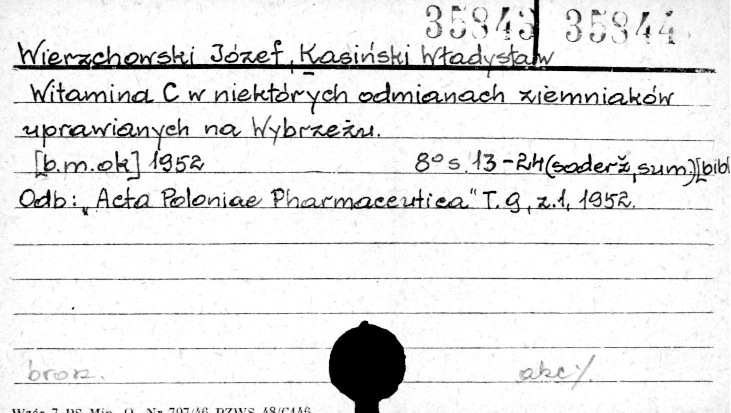 35843 35844
Wierzchowski Józef, Kasiński Władysław
Witamina C w niektórych odmianach ziemniaków
uprawianych na Wybrzeżu.
[b.m.ok] 1952 8° s. 13-24 (soderž, sum.) [bibl
Odb: „Acta Poloniae Pharmaceutica" T. 9, z.1, 1952.
brosz. akc
Wzór 7 PS Min. O. Nr 797/46 PZWS